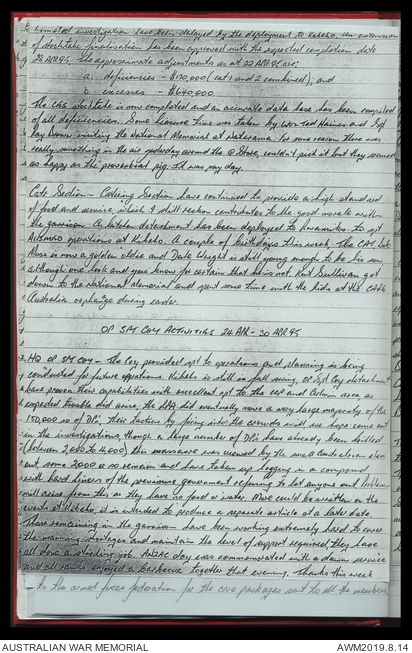 & related investigation have been delayed by the deployment to Kibeho. An extension
of stocktake finalisation has been approved with the expected completion date
26 APR 95. The approximate adjustments as at 22 APR 95 are:
a. deficiencies - $170,000 (cat 1 and 2 combined); and
b. excesses - $640,000.
The stocktake is now completed and an accurate data base has been compiled
of all deficiencies. Some leisure time was taken by WO2 Ted Haines and Sgt
visiting the National Memorial at Natarama. For some reason there was
really something in the air yesterday around the Q Store, couldn't pick it but they seemed
as happy as the proverbial pig. It was pay day.
Cats Section - Catering Section have continued to provide a high standard
of food and service which I still reckon contributes to the good morale within
the garrison. A kitchen detachment has been deployed to to spt
operations at Kibeho. A couple of birthdays this week. The CAT,
Ross is now a golden oldie and Dale Wright is still young enough to be his son,
although one look and you know for certain that he is not. Kent Sullivan got
down to the National Memorial and spent some time with the kids at the CARE
Australia orphanage during easter.
OP SPT COY ACTIVITIES 24 APR - 30 APR 95
HQ OP SPT COY - The Coy provided spt to operations and planning is being
conducted for future operations. Kibeho is still in full swing, OP Spt Coy detachment
have proven their capabilities with excellent spt to the and area, as
expected trouble did arise, the RPA did eventually move a very large majority of the
150,000 or so DP's. Their tactics by firing into the crowds will we hope come out
in the investigations, though a large number of DP's have already been killed
(between 2,000 to 4,000) this manoeuvre was viewed by the ones
out, some 2000 or so remain and have taken up in a compound
with hard liners of the previous government refusing to let anyone out. Problems
will arise from this as they have no food or water. More could be written on the
events at Kibeho, it is intended to produce a separate article at a later date.
Those remaining in the garrison have been working extremely hard to cover
the manning shortages and maintain the level of support required they have
all done a sterling job. ANZAC day was commemorated with a dawn service
and all ranks enjoyed a barbecue together that evening. Thanks this week
to the armed forces federation for the care packages sent to all the members
AUSTRALIAN WAR MEMORIAL
AWM2019.8.14